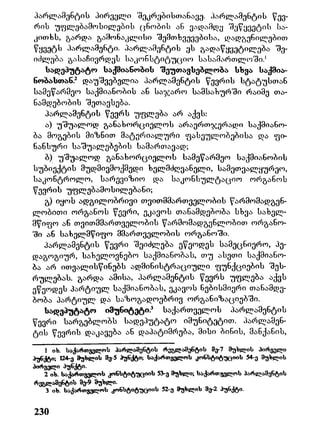 პარლამენტის პირველი შეკრებისთანავე. პარლამენტის წევ-
რის უფლებამოსილების ცნობის ან ვადამდე შეწყვეტის სა-
კითხს, გარდა გამონაკლისი შემთხვევებისა, დადგენილებით
წყვეტს პარლამენტი. პარლამენტის ეს გადაწყვეტილება შე-
იძლება გასაჩივრდეს საკონსტიტუციო სასამართლოში.¹
სადეპუტატო საქმიანობის შეუთავსებლობა სხვა საქმია-
ნობასთან.² დაუშვებელია პარლამენტის წევრის სტატუსთან
სამეწარმეო საქმიანობის ან საჯარო სამსახურში რაიმე თა-
ნამდებობის შეთავსება.
პარლამენტის წევრს უფლება არ აქვს:
ა) უშუალოდ განახორციელოს არაერთჯერადი საქმიანო-
ბა მოგების მიზნით მატერიალური ფასეულობებისა და ფი-
ნანსური საშუალებების სამართავად;
ბ) უშუალოდ განახორციელოს სამეწარმეო საქმიანობის
სუბიექტის მუდმივმოქმედი ხელმძღვანელი, სამეთვალყურეო,
საკონტროლო, სარევიზიო და საკონსულტაციო ორგანოს
წევრის უფლებამოსილებანი;
გ) იყოს ადგილობრივი თვითმმართველობის წარმომადგენ-
ლობითი ორგანოს წევრი, ეკავოს თანამდებობა სხვა სახელ-
მწიფო ან თვითმმართველობის წარმომადგენლობით ორგანო-
ში ან სახელმწიფო მმართველობის ორგანოში.
პარლამენტის წევრი შეიძლება ეწეოდეს სამეცნიერო, პე-
დაგოგიურ, სახელოვნებო საქმიანობას, თუ ასეთი საქმიანო-
ბა არ ითვალისწინებს ადმინისტრაციული ფუნქციების შეს-
რულებას. გარდა ამისა, პარლამენტის წევრს უფლება აქვს
ეწეოდეს პარტიულ საქმიანობას, ეკავოს ნებისმიერი თანამდე-
ბობა პარტიულ და საზოგადოებრივ ორგანიზაციებში.
სადეპუტატო იმუნიტეტი.³ საქართველოს პარლამენტის
წევრი სარგებლობს სადეპუტატო იმუნიტეტით. პარლამენ-
ტის წევრის დაკავება ან დაპატიმრება, მისი ბინის, მანქანის,
1 იხ. საქართველოს პარლამენტის რეგლამენტის მე-7 მუხლის პირველი
პუნქტი; 124-ე მუხლის მე-5 პუნქტი; საქართველოს კონსტიტუციის 54-ე მუხლის
პირველი პუნქტი.
2 იხ. საქართველოს კონსტიტუციის 53-ე მუხლი; საქართველოს პარლამენტის
რეგლამენტის მე-9 მუხლი.
3 იხ. საქართველოს კონსტიტუციის 52-ე მუხლის მე-2 პუნქტი.
230